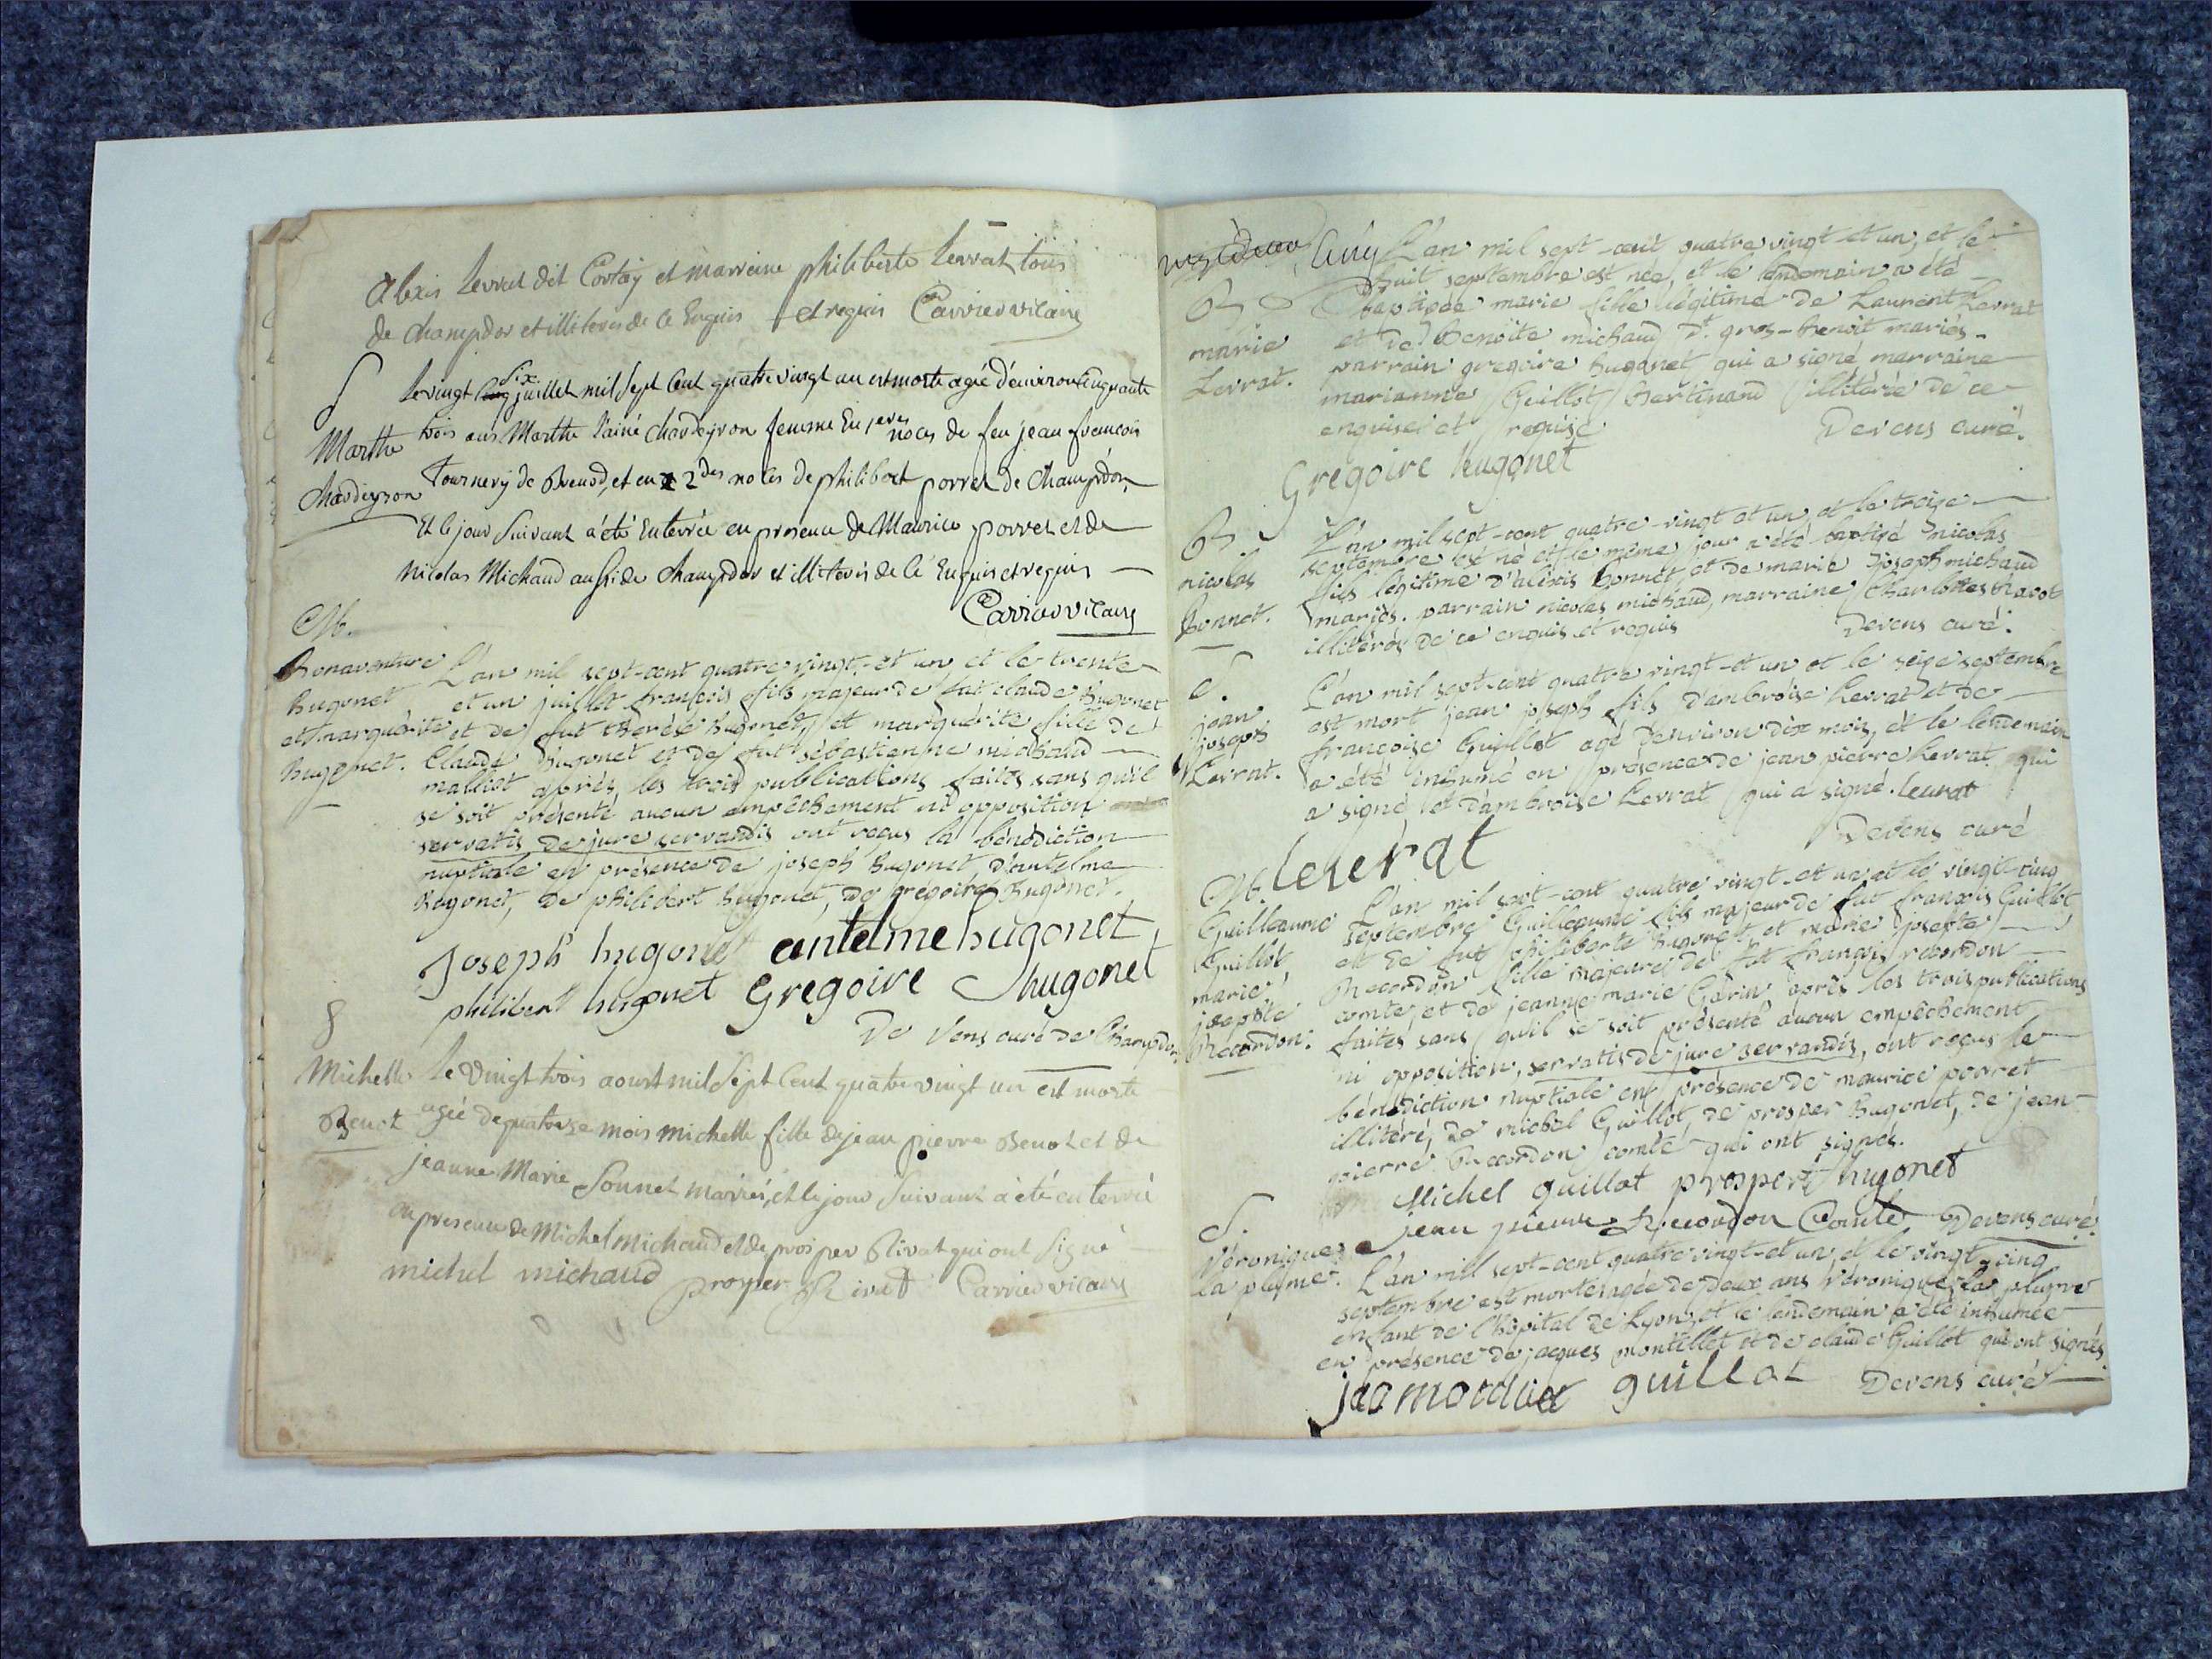 Alexis Levrat dit Cortay et marraine philiberte Levrat tous
de champdor et illiteres de ce Enquis et requis Carrier vicaire
S
Marthe
Chardeyron
Le vingt six juillet mil sept cent quatre vingt un est morte agée d'environ cinquante
trois ans Marthe l'ainé chardeyron femme En 1eres noces de feu jean francois
Tournery de Brenod, et en 2des noces de philibert porret de Champdor,
Et le jour suivant a été Enterrée en presence de Maurice porret et de
Nicolas Michaud aussi de champdor et illiterés de ce Enquis et requis
Carrier vicaire
M.
Bonaventure
hugonet
et marguerite
hugonet.
L'an mil sept-cent quatre vingt-et un et le trente
et un juillet françois fils majeur de fut claude hugonet
et de fut therèse hugonet, et marguerite fille de
Claude hugonet et de fut sebastienne michaud
malliot après les trois publications faites sans qu'il
se soit présenté aucun empêchement ni opposition
servatis de jure servandis ont reçus la bénédiction
nuptiale en présence de joseph hugonet d'antelme
hugonet, de philibert hugonet, de gregoire hugonet.
Joseph hugonet antelme hugonet
philibert hugonet Gregoire hugonet
De Vens curé de Champdor
S
Michelle
Benot
Le vingt trois aoust mil sept cent quatre vingt un est morte
agée de quatorze mois michelle fille de jean pierre Benot et de
jeanne Marie Sonnet mariés, et le jour suivant a été enterré
en presence de Michel michaud et de prosper Rivat qui ont signé
michel michaud prosper Rivat Carrier vicaire
B
marie
Levrat.
L'an mil sept-cent quatre vingt et un, et le
huit septembre est née, et le lendemain a été
baptisée marie fille légitime de Laurent Levrat
et de Benoîte michaud dt. gros-benoit mariés.
parrain gregoire hugonet qui a signé marraine
marianne Guillot bertinand illitérée de ce
enquise et requise Devens curé.
Gregoire hugonet
B.
nicolas
Bonnet.
L'an mil sept-cent quatre-vingt et un, et le treize
septembre est né et le même jour a été baptisé nicolas
fils légitime d'alexis bonnet, et de marie joseph michaud
mariés. parrain nicolas michaud, marraine Charlotte
illitérés de ce enquis et requis Devens curé.
S.
jean
joseph
Levrat.
L'an mil sept-cent quatre vingt-et un et le seize septembre
est mort jean joseph fils d'ambroise Levrat et de
françoise Guillot agé d'environ dix mois, et le lendemain
a été inhumé en présence de jean pierre Levrat qui
a signé et d'ambroise Levrat qui a signé. leurat
Devens curé
leverat
M.
Guilleaume
Guillot,
marie
josephte
Recordon.
L'an mil sept-cent quatre vingt-et un et le vingt-cinq
septembre Guilleaume fils majeur de fut françois Guillot,
et de fut philiberte hugonet, et marie josephte
Recordon fille majeure de fut françois recordon
comte, et de jeanne marie Gorin après les trois publications
faites sans qu'il se soit présenté aucun empêchement
ni opposition, servatis de jure servandis, ont reçus la
bénédiction nuptiale en présence de maurice porret
illitéré, de michel Guillot, de prosper hugonet, de jean
pierre Reccordon comte qui ont signés.
Michel guillot prosper hugonet
jean pierre Reccordon Comte Devens curé
S.
Véronique
la plume.
L'an mil sept-cent quatre vingt-et un, et le vingt-cinq
septembre est morte agée de deux ans Véronique la plume
enfant de l'hôpital de Lyon, et le lendemain a été inhumée
en présence de jacques montillet et de claude Guillot qui ont signés.
guillot Devens curé